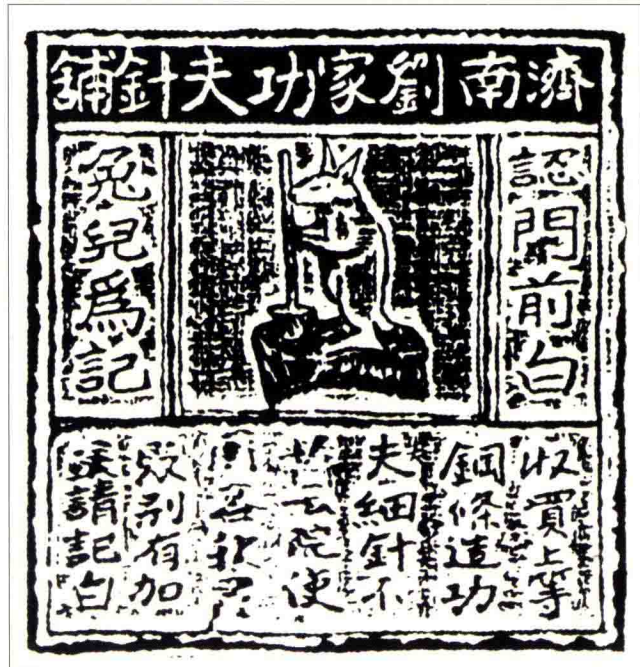 濟南劉家功夫針舖
認門前白
兔兒爲記
收買上等
鋼條造功
夫細針不
宅院使
別有加
請記白